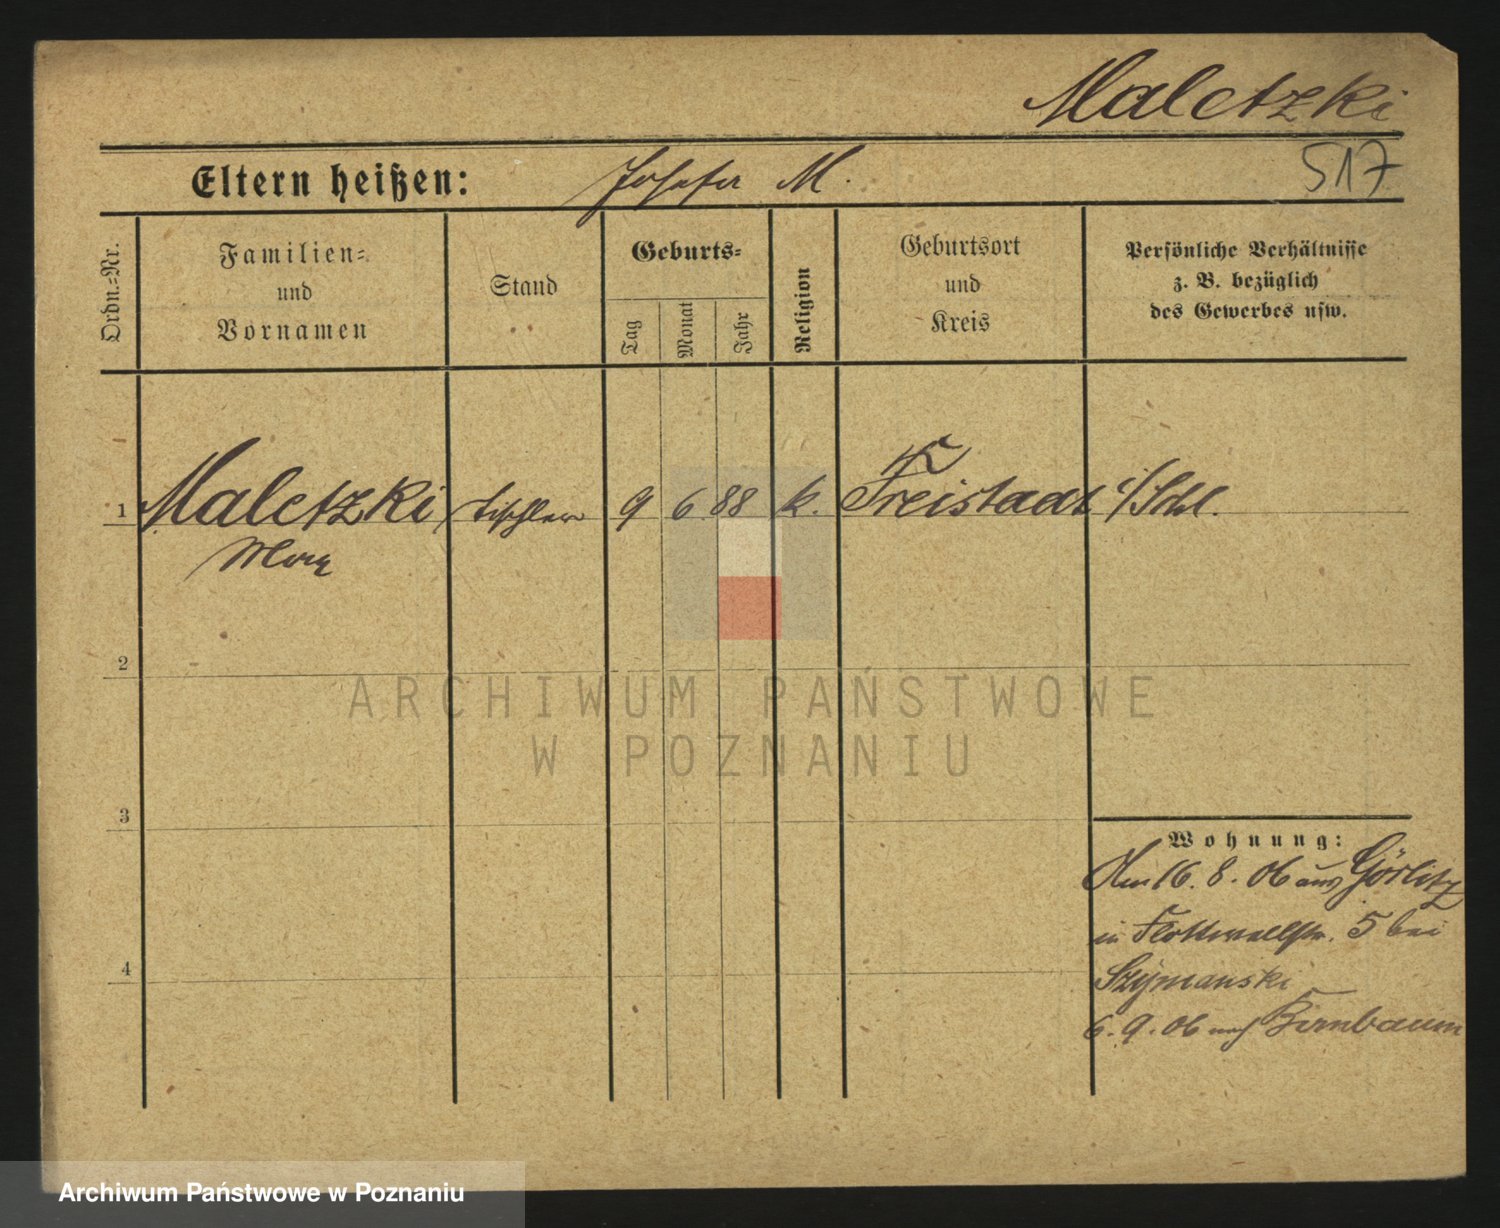 Maletzki
517
Eltern heißen: Josefa M.
Ordn.-Nr.
Familien-
und
Vornamen
Stand
Geburts-
Tag
Monat
Jahr
Religion
Geburtsort
und
Kreis
Persönliche Verhältnisse
z. B. bezüglich
des Gewerbes usw.
1 Maletzki Tischler 9 6. 88 k. Freistadt i/Schl.
Max
2
ARCHIWUM PAŃSTWOWE
W POZNANIU
3
Wohnung:
16. 8. 06 aus Görlitz
in Flottwellstr. 5 bei
Szymanski
4
6. 9. 06 nach Birnbaum
Archiwum Państwowe w Poznaniu